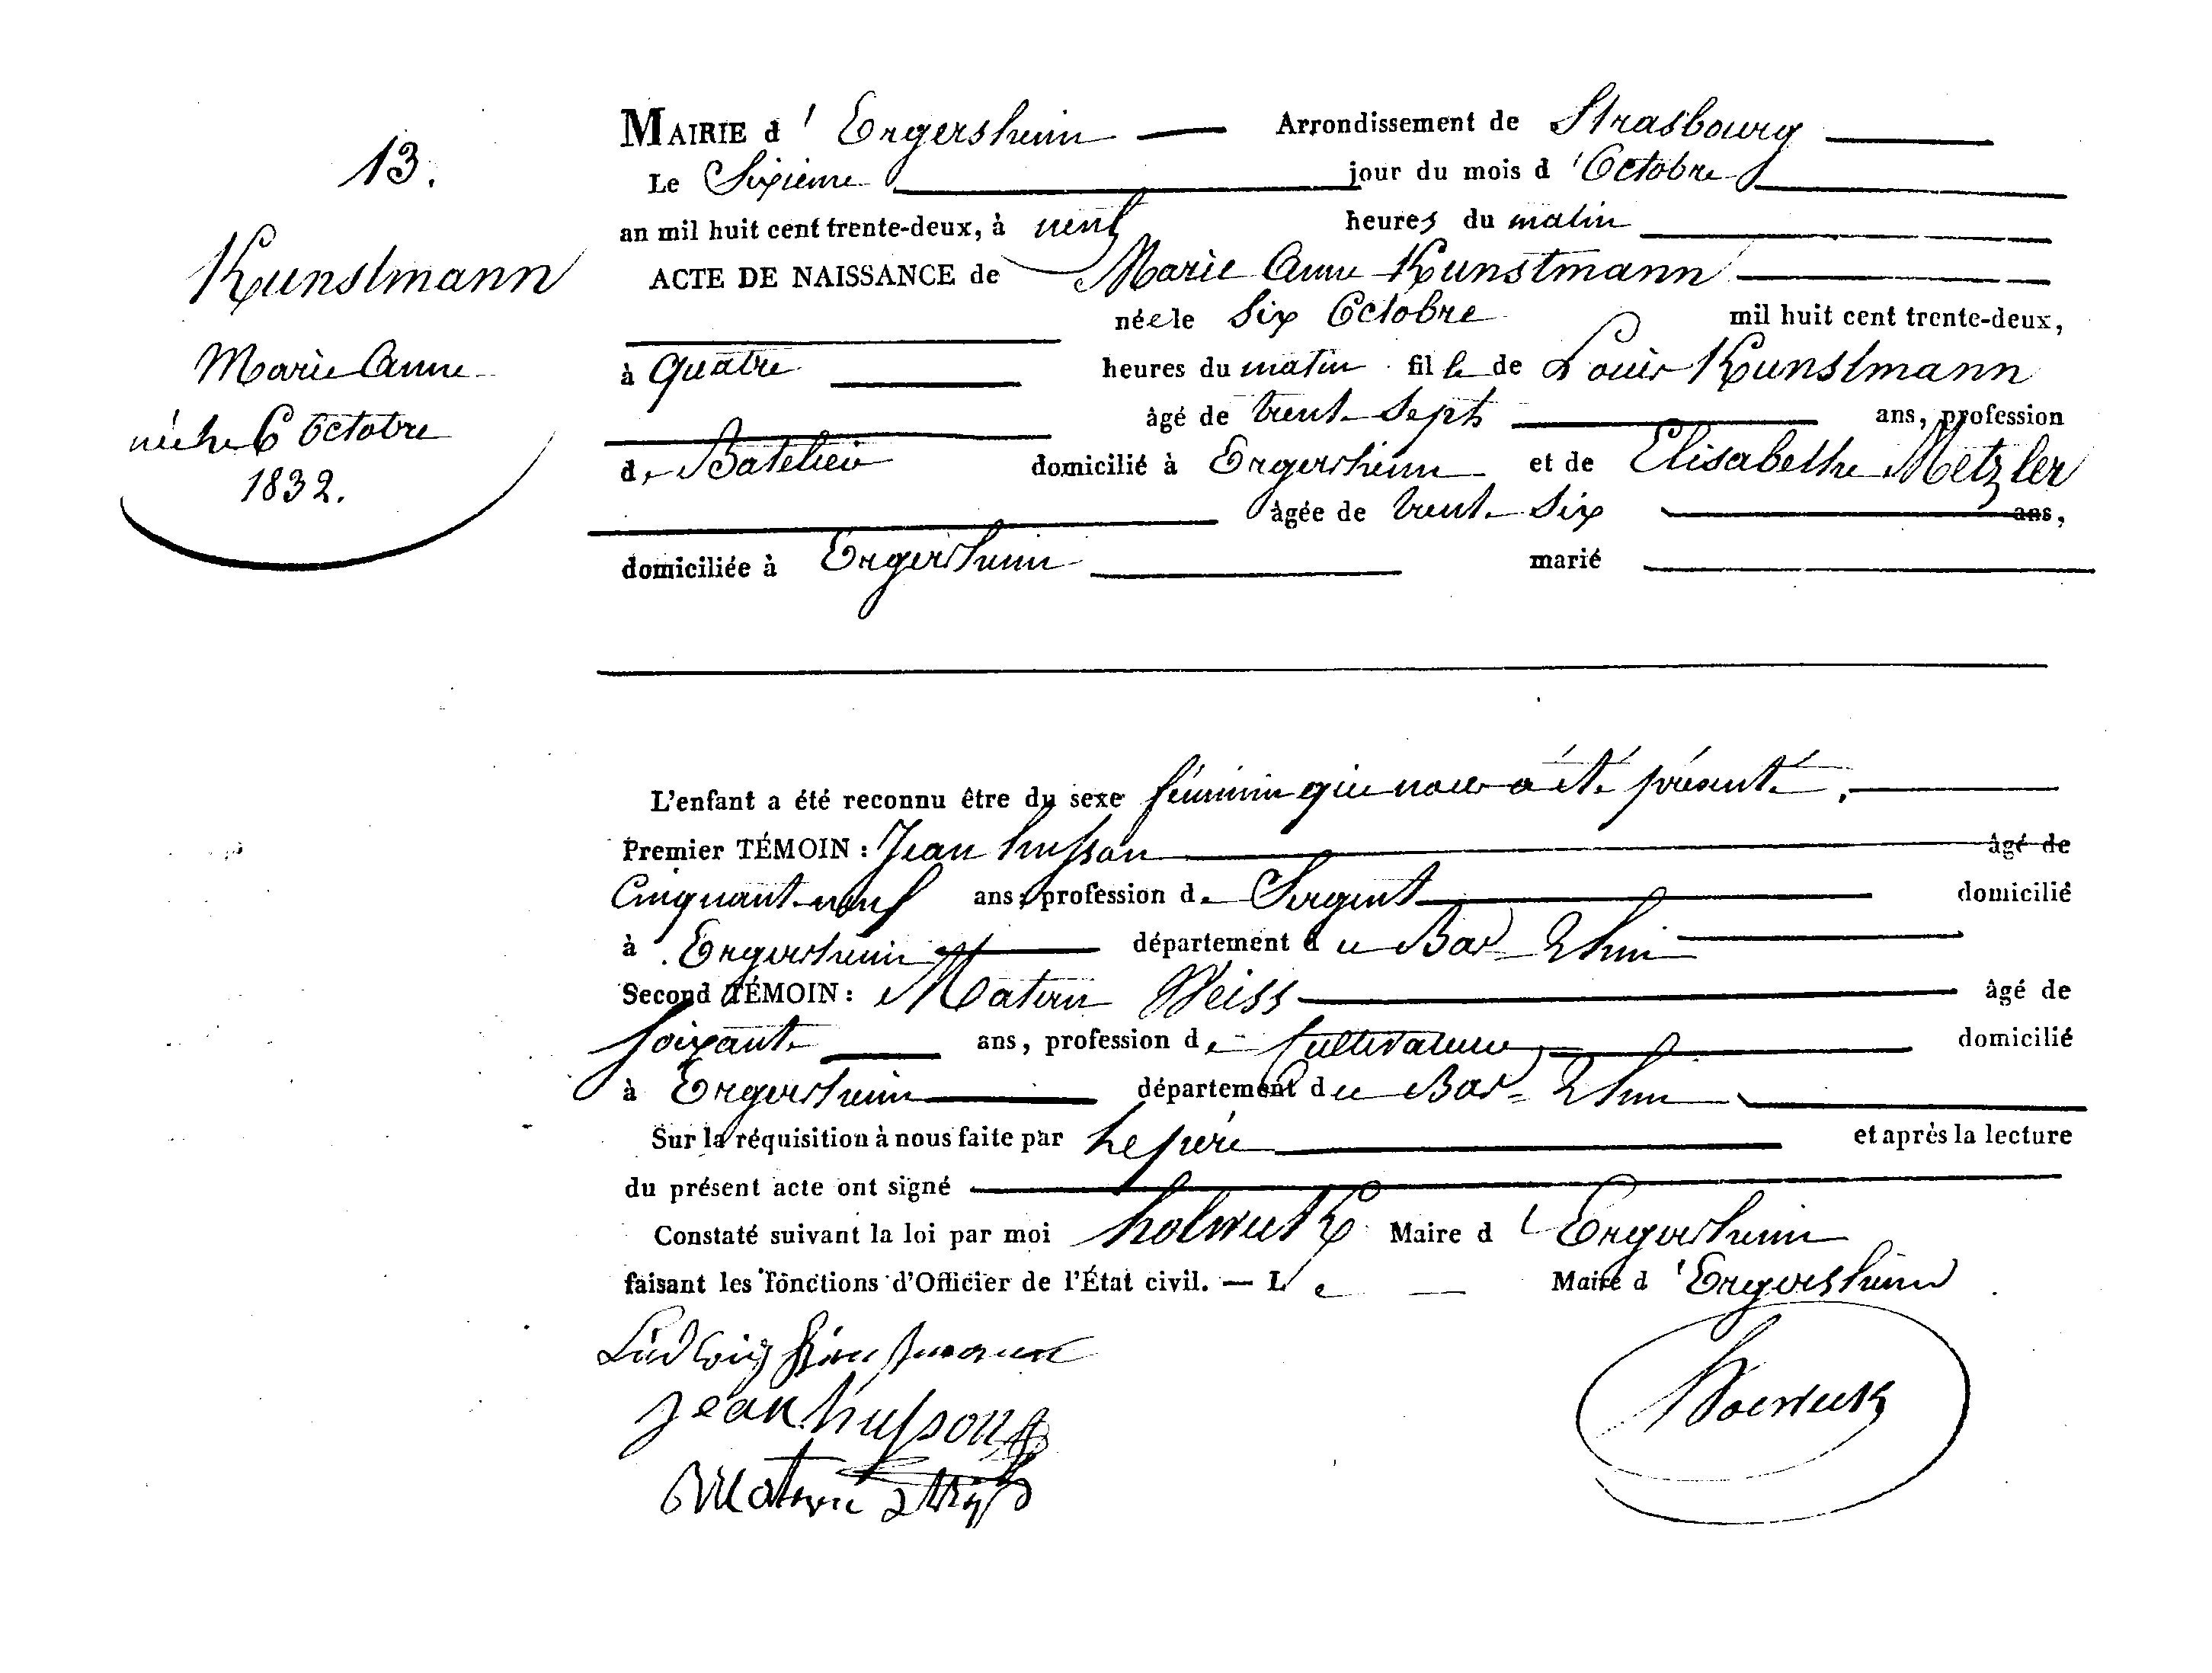 13.
Kunstmann
Marie Anne
née le 6 Octobre
1832.
MAIRIE d'Ergersheim Arrondissement de Strasbourg
Le Sixième jour du mois d'Octobre
an mil huit cent trente-deux, à neuf heures du matin
ACTE DE NAISSANCE de Marie Anne Kunstmann
née le Six Octobre mil huit cent trente-deux,
à quatre heures du matin fille de Louis Kunstmann
âgé de trente Sept ans, profession
de Batelier domicilié à Ergersheim et de Elisabethe Metzler
âgée de trente Six ans,
domiciliée à Ergersheim marié
L'enfant a été reconnu être du sexe féminin qui nous a été présenté.
Premier TÉMOIN : Jean husson âgé de
Cinquante neuf ans, profession de Sergent domicilié
à Ergersheim département du Bas-Rhin
Second TÉMOIN : Matern Weiss âgé de
soixante ans, profession de Cultivateur domicilié
à Ergersheim département du Bas-Rhin
Sur la réquisition à nous faite par le père et après la lecture
du présent acte ont signé
Constaté suivant la loi par moi Maire d'Ergersheim
faisant les fonctions d'Officier de l'État civil. — Le Maire d'Ergersheim
Ludwig Kunstmann
jean husson
Matern Weiß